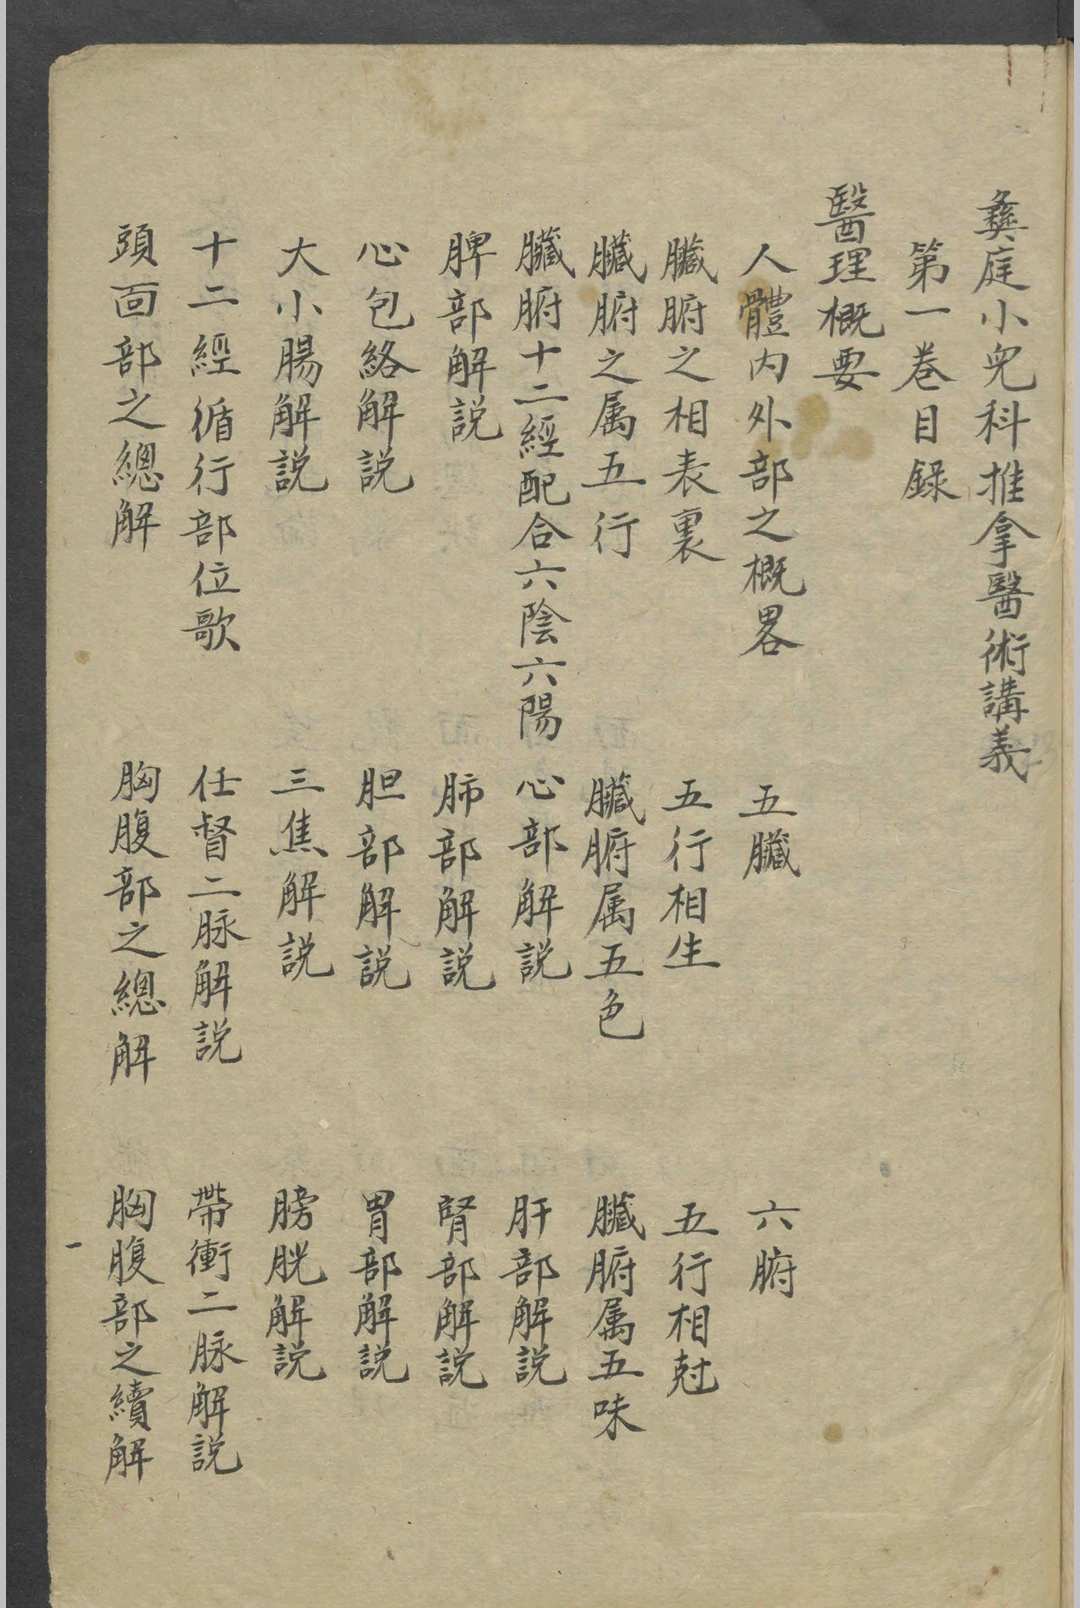 彝庭小兒科推拿醫術講義
第一卷目錄
醫理概要
人體內外部之概畧　五臟　六腑
臟腑之相表裏　五行相生　五行相尅
臟腑之属五行　臟腑属五色　臟腑属五味
臟腑十二經配合六陰六陽　心部解説　肝部解説
脾部解説　肺部解説　腎部解説
心包絡解説　胆部解説　胃部解説
大小腸解説　三焦解説　膀胱解説
十二經循行部位歌　任督二脉解説　帶衝二脉解説
頭面部之總解　胸腹部之總解　胸腹部之續解
一